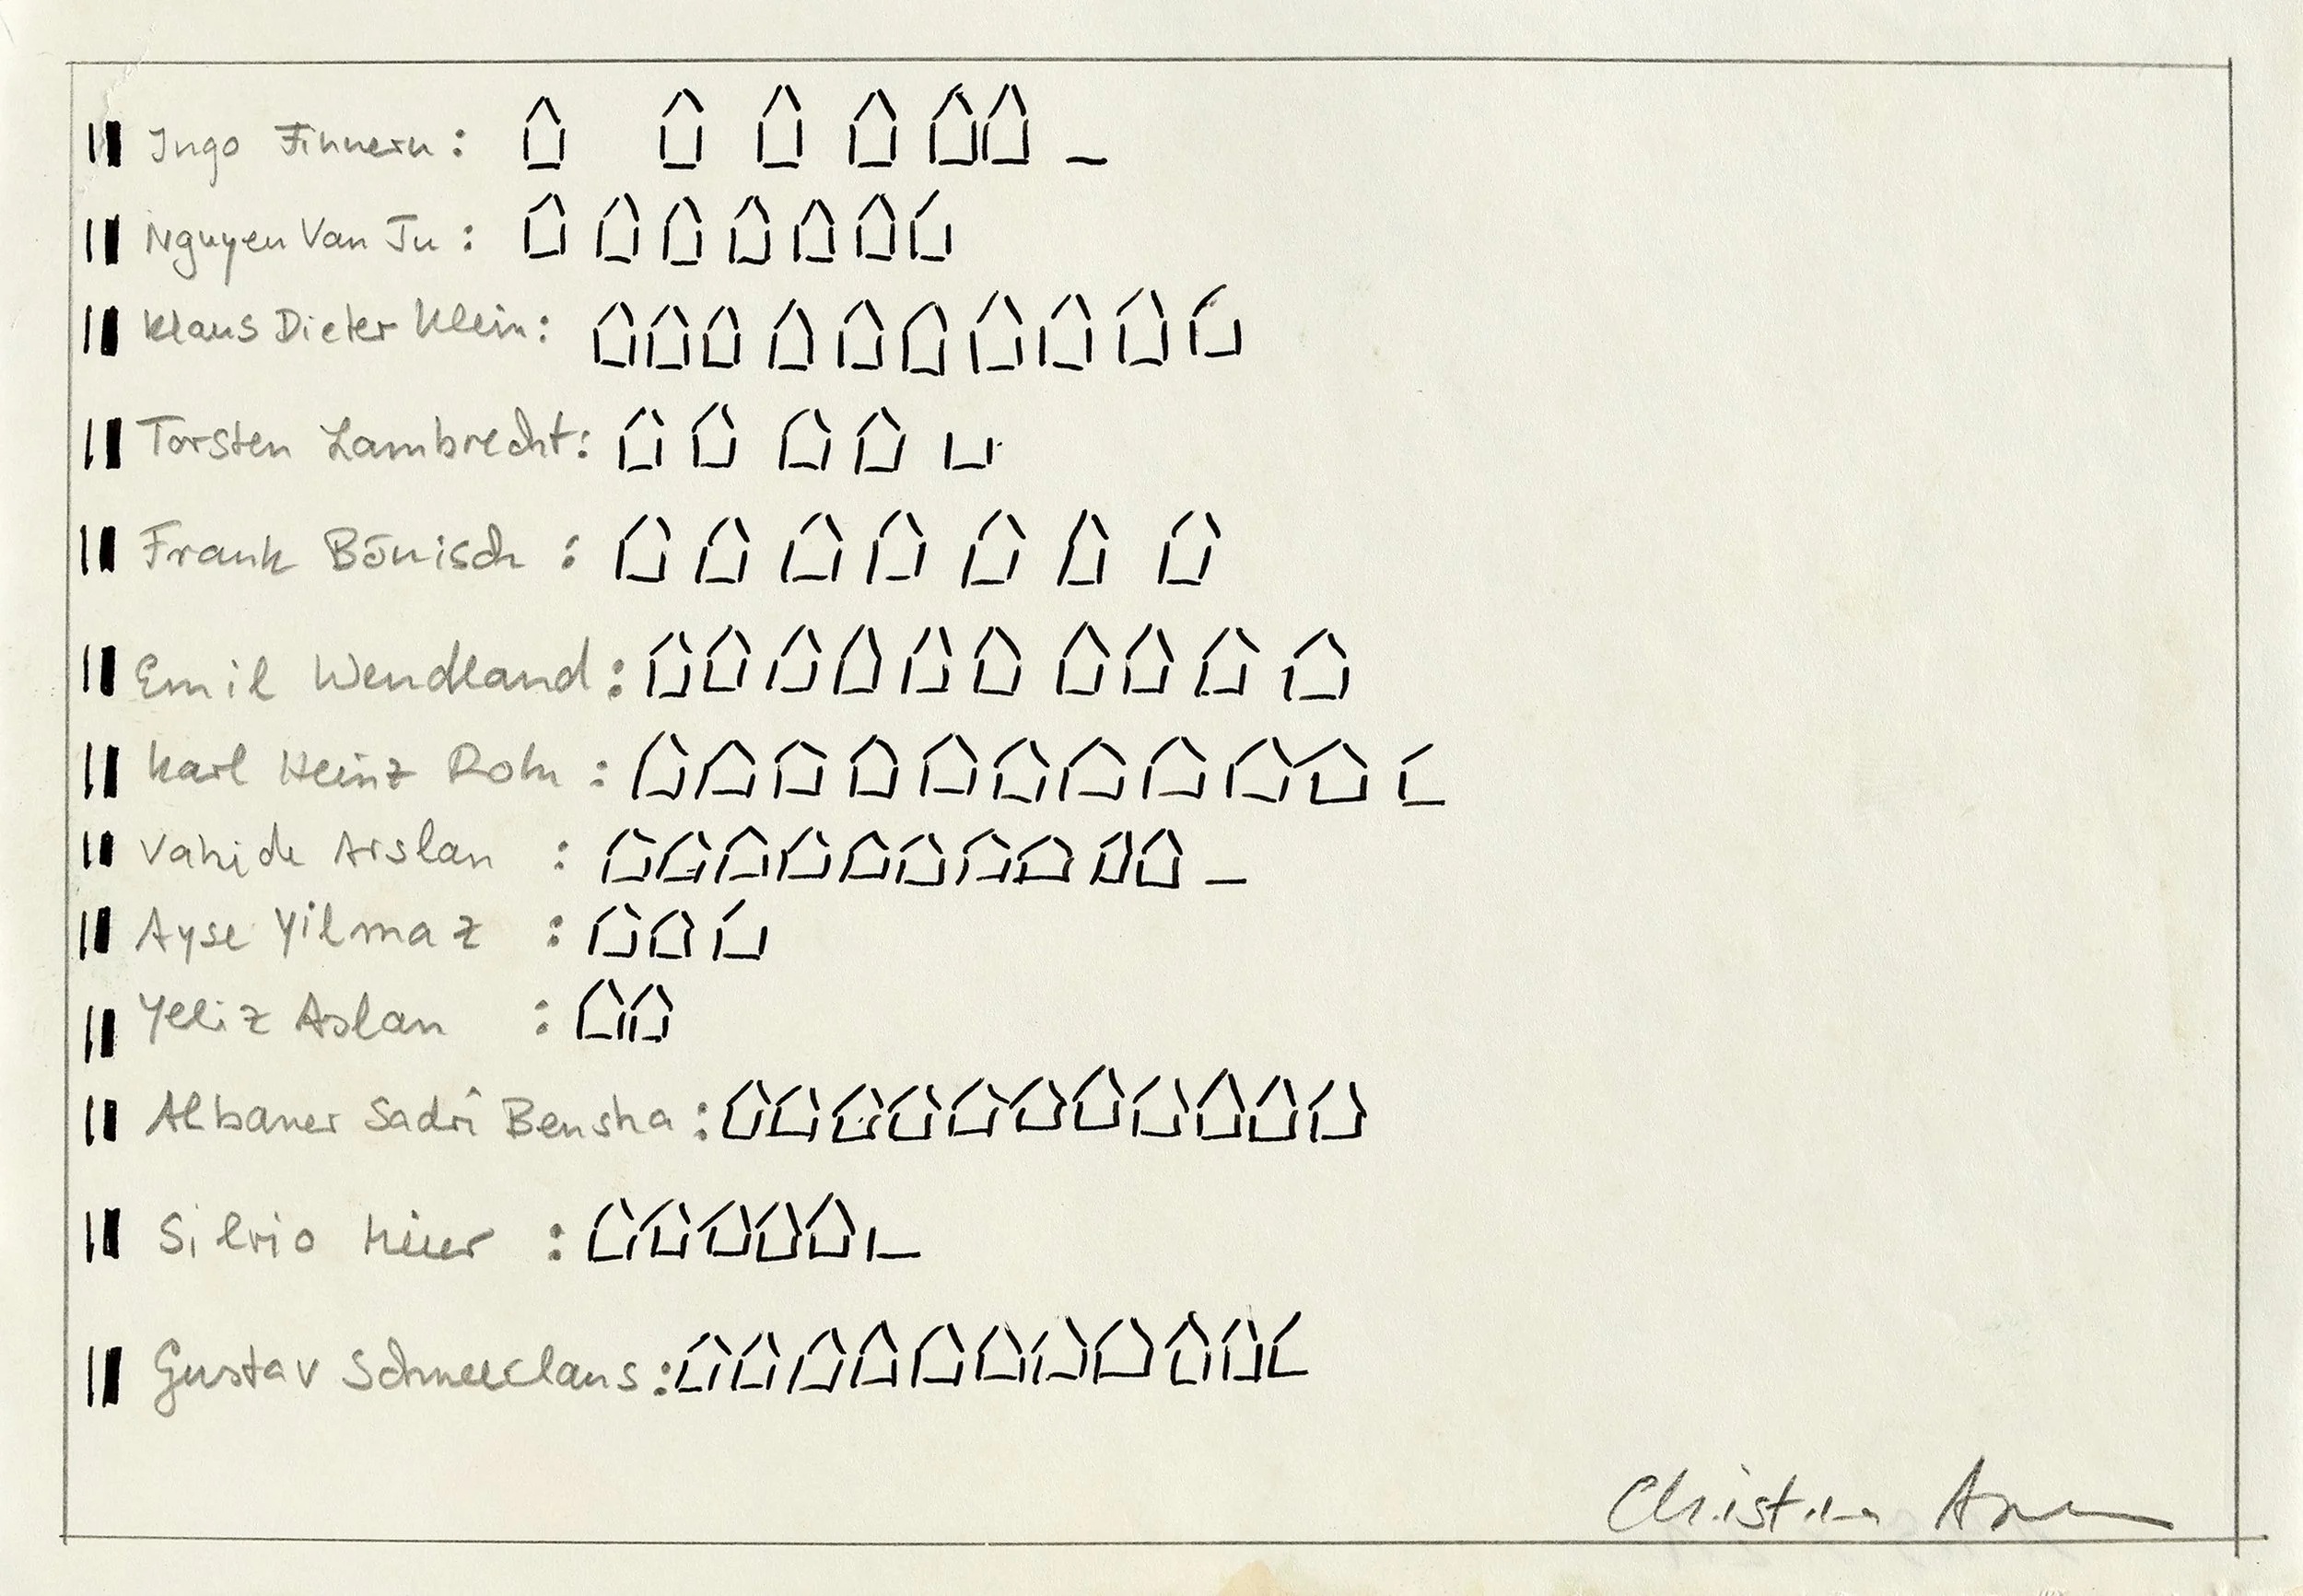 Ingo Finnern:
Nguyen Van Tu:
Klaus Dieter Klein:
Torsten Lambrecht:
Frank Bönisch:
Emil Wendland:
Karl Heinz Rohn:
Vahide Arslan:
Ayse Yilmaz:
Yeliz Aslan:
Albaner Sadri Bensha:
Silvio Meier:
Gustav Schneeclaus:
Christina